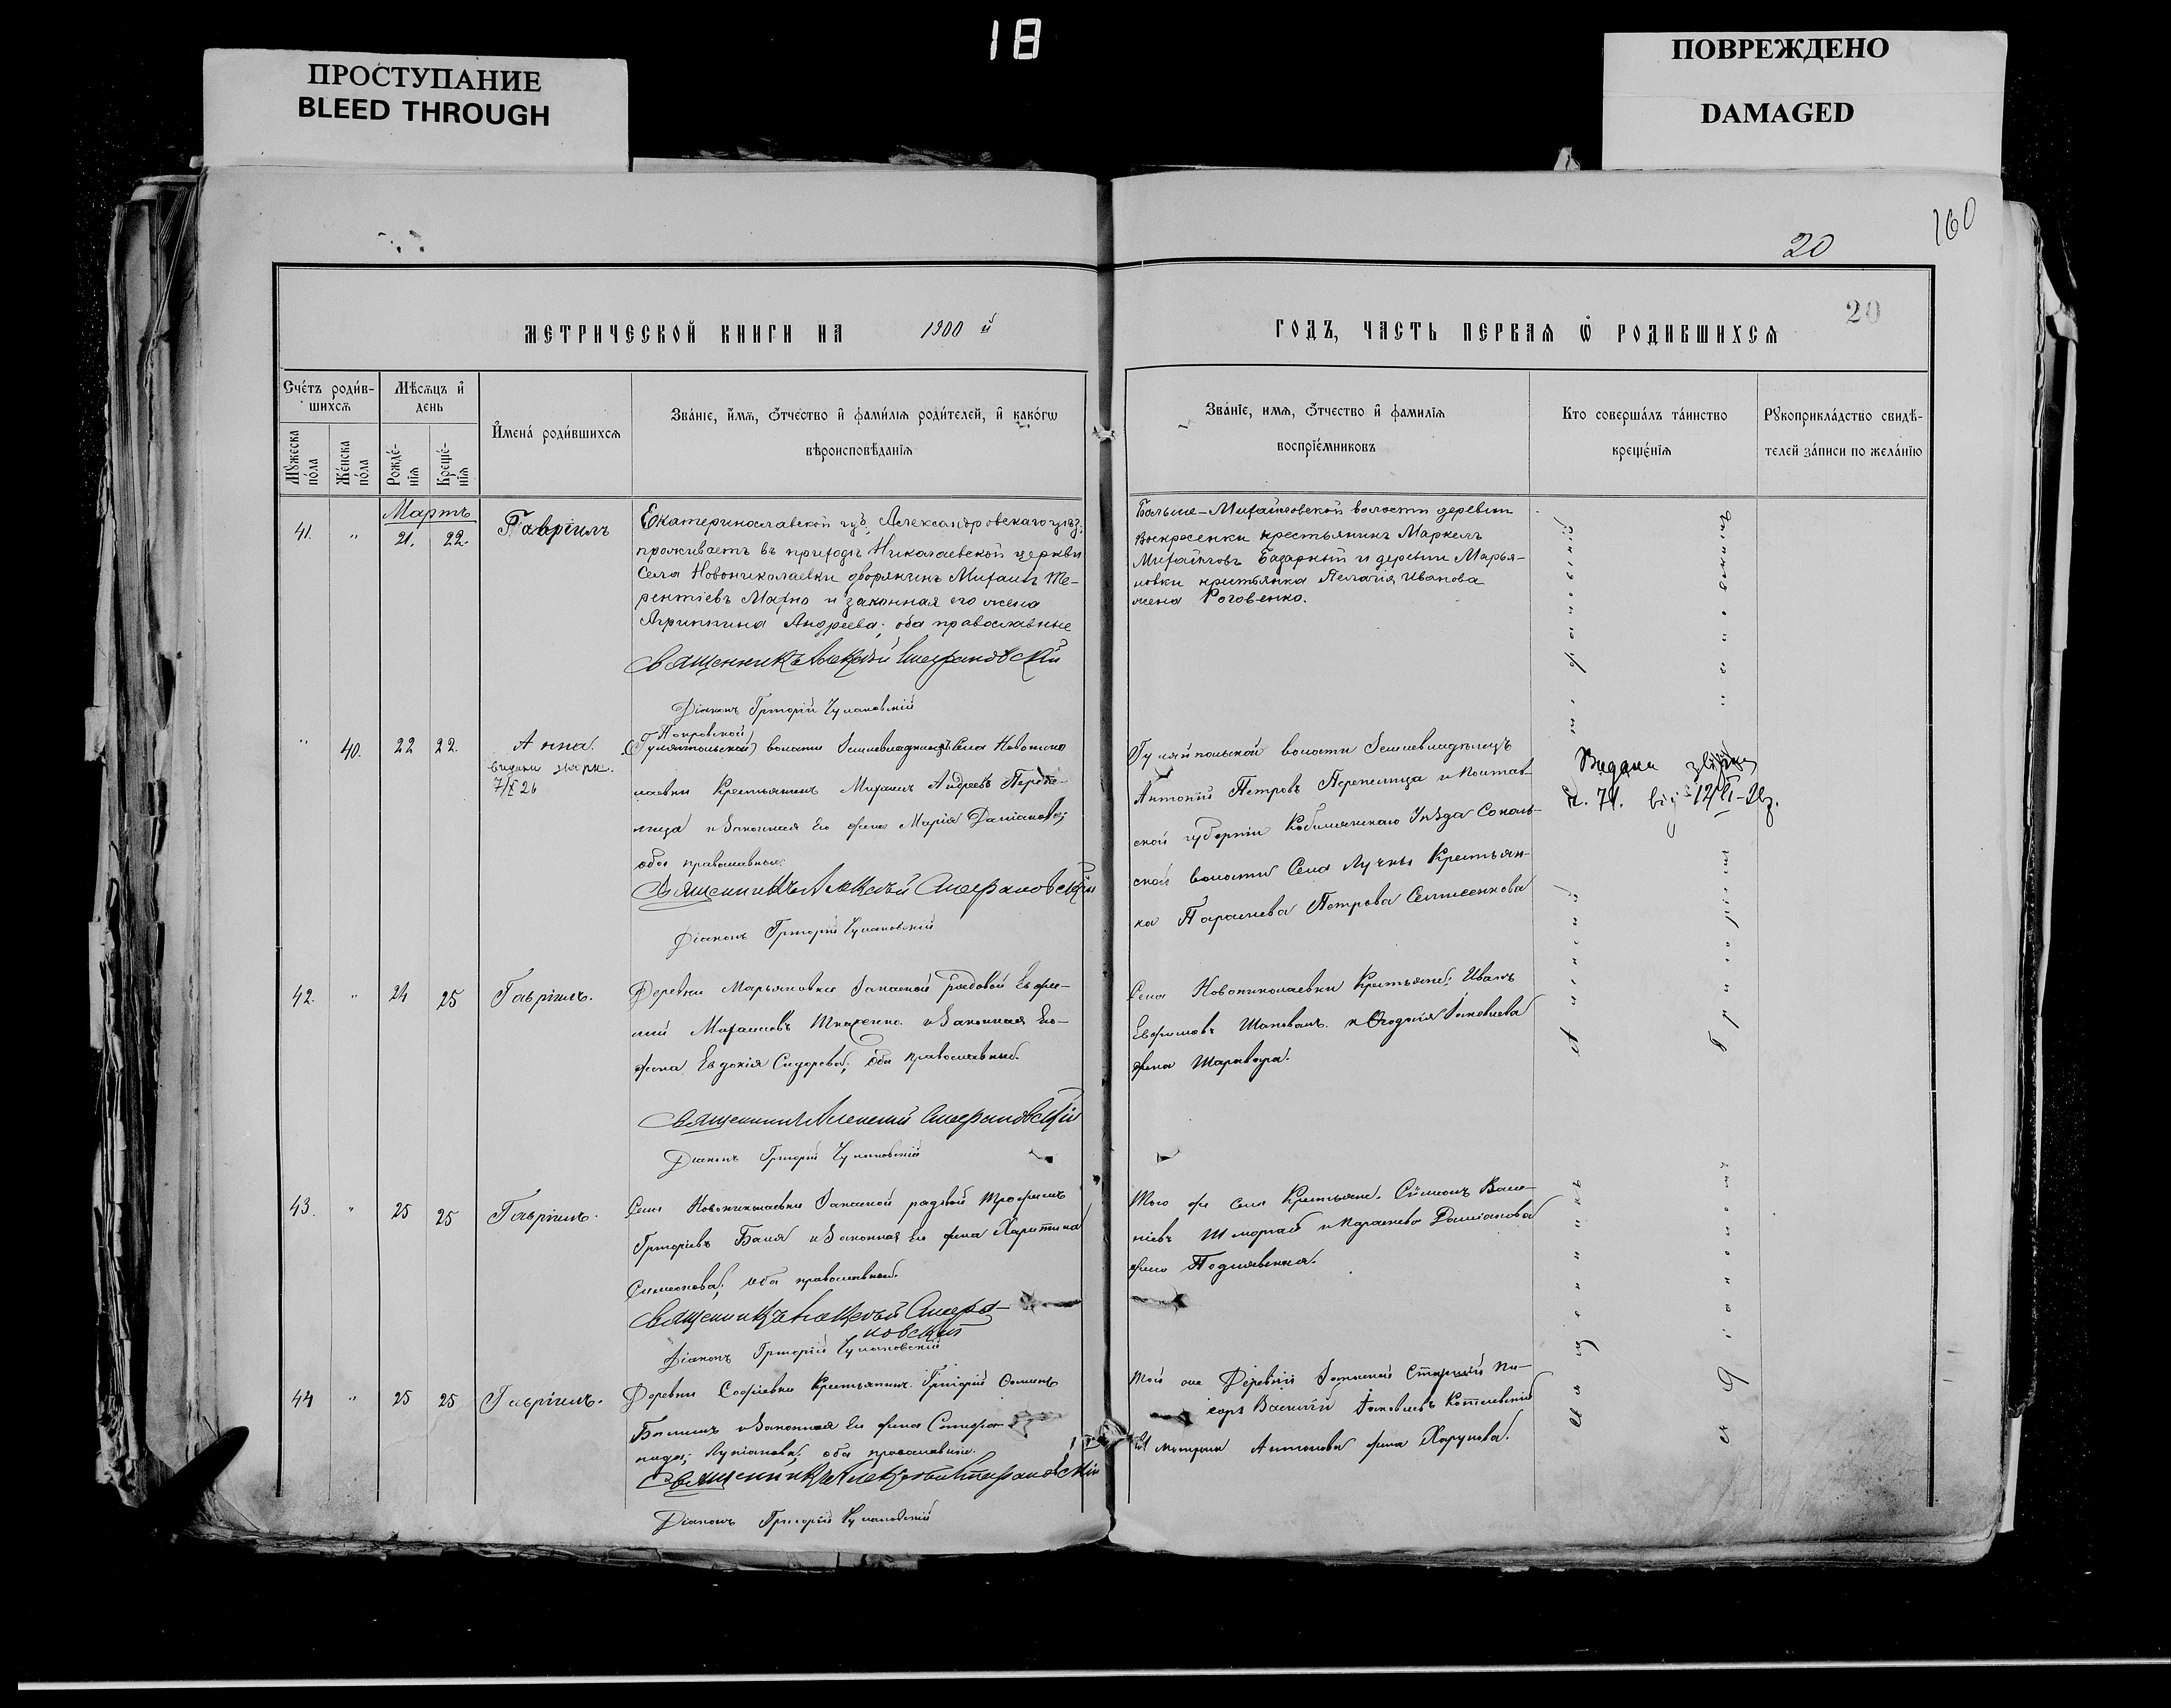 18
ПРОСТУПАНИЕ
BLEED THROUGH
ПОВРЕЖДЕНО
DAMAGED
160
20
20
МЕТРИЧЕСКОЙ КНИГИ НА 1900 й
ГОДЪ, ЧАСТЬ ПЕРВАЯ Ѡ РОДИВШИХСЯ
Счетъ родив-
шихся
Мѣсяцъ и
день
Мужеска
пола
Женска
пола
Рожде-
нія
Креще-
нія
Имена родившихся
Званіе, имя, отчество и фамилія родителей, и какогѡ
вѣроисповѣданія
Званіе, имя, отчество и фамилія
воспріемниковъ
Кто совершалъ таинство
крещенія
Рукоприкладство свидѣ-
телей записи по желанію
Мартъ
41. " 21. 22. Гавріилъ
Екатеринославской губ, Александровскаго уѣз;
проживаетъ въ приходѣ Николаевской церкви
села Новониколаевки дворянинъ Михаилъ Те-
рентіевъ Махно и законная его жена
Агриппина Андреева; оба православные
Священникъ Алексѣй Стефановскій
Діаконъ Григорій Чумановскій
Больше-Михайловской волости деревни
Воскресенки крестьянинъ Маркелъ
Михайловъ Базарный и деревни Марья-
новки крестьянка Пелагія Иванова
жена Роговенко.
" 40. 22 22. Анна.
7/X 26
Покровской
(Гуляйпольской) волости Села Новонико
лаевки Крестьянинъ Михаилъ Андреевъ Перепе-
лица и Законная Его жена Марія Даміанова;
оба православные.
Священникъ Алексѣй Стефановскій
Діаконъ Григорій Чумановскій
Гуляйпольской волости Землевладѣлецъ
Антоній Петровъ Перепелица и Полтав-
ской губерніи Кобелякскаго Уѣзда Соколь-
ской волости Села Лучки Крестьян-
ка Параскева Петрова
Видана
42. " 24 25 Гавріилъ.
Деревни Марьяновки Запасной рядовой Евфи-
мій Михаиловъ Ткаченко и Законная Его
жена Евдокія Сидорова; Оба православные.
Священникъ Алексѣй Стефановскій
Діаконъ Григорій Чумановскій
Села Новониколаевки Крестьяне: Иванъ
Евфимовъ Шаповалъ и Феодосія Іаковлева
жена Шаравара.
43. " 25 25 Гавріилъ.
Села Новониколаевки Запасной рядовой Трофимъ
Григоріевъ Баня и Законная Его жена Харитина
Симеонова; Оба православные.
Священникъ Алексѣй Стефа-
новскій
Діаконъ Григорій Чумановскій
Того же Села Крестьяне. Симеонъ Васи-
ліевъ Шморгай и Параскева Даміанова
жена
44 " 25 25 Гавріилъ.
Деревни Софіевки Крестьянинъ Григорій Фоминъ
и Законная Его жена Стефа-
нида Лукіанова; оба православные.
Священникъ Алексѣй Стефановскій
Діаконъ Григорій Чумановскій
Той же Деревни Запасной Старшій Пи-
сарь Василій Іаковлевъ
и Матрона Антонова жена Харунова.
Священникъ Алексій Стефановскій
съ Діакономъ Григоріемъ Чумановскимъ